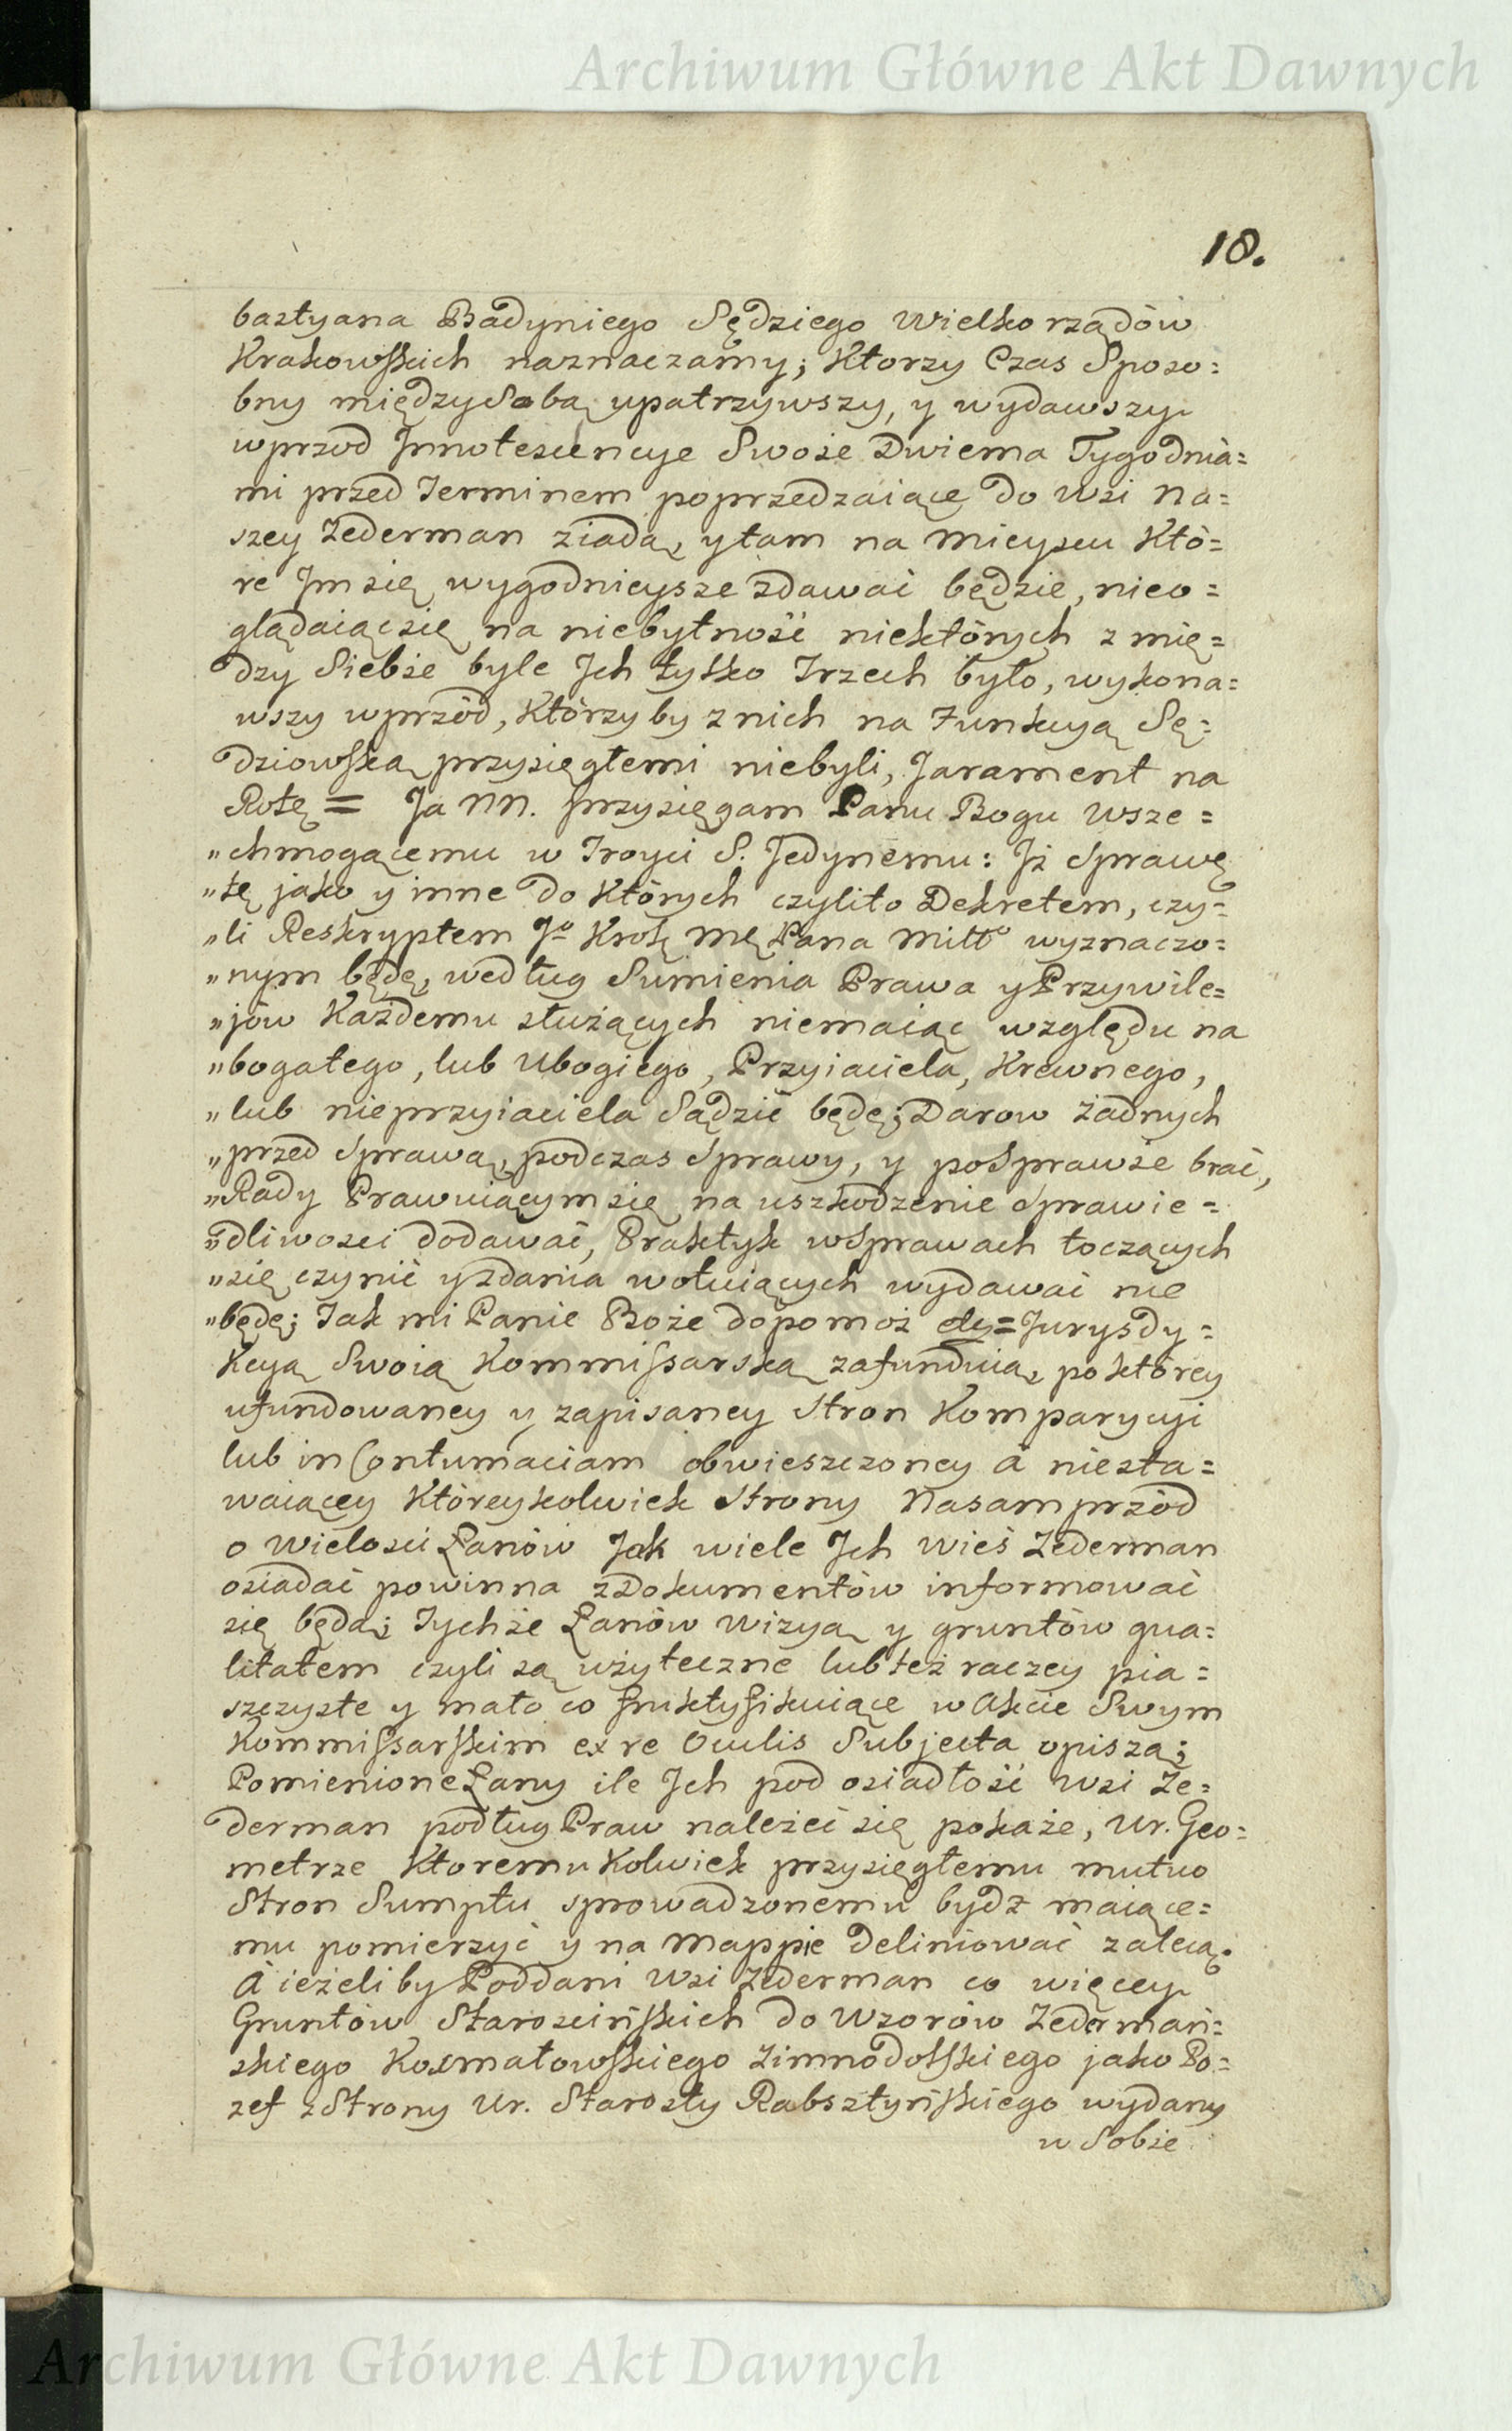 Archiwum Główne Akt Dawnych
18.
bastyana Badyniego Sędziego Wielkorządów
Krakowskich naznaczamy; Ktorzy Czas Sposo=
bny między Sobą upatrzywszy, y wydawszy
wprzod Innotescencye Swoie Dwiema Tygodnia=
mi przed Terminem poprzedzaiące do Wsi Na=
szey Zederman ziadą, y tam na Mieyscu Któ=
re Im się wygodnieysze zdawać będzie, nieo=
glądaiąc się na niebytność niektórych z mię=
dzy Siebie byle Ich tylko Trzech było, wykona=
wszy wprzód, Którzy by z nich na Funkcyą Sę=
dziowską przysięgłemi niebyli, Jurament na
Rotę = Ja NN. przysięgam Panu Bogu Wsze=
„chmogącemu w Troycy S. Jedynemu: Iż Sprawę
„tę jako y inne do Których czylito Dekretem, czy=
„li Reskryptem Jo Krolę Mę Pana Miłto wyznaczo=
„nym będę, według Sumienia Prawa y Przywile=
„jów Każdemu służących niemaiąc względu na
„bogatego, lub Ubogiego, Przyiaciela, Krewnego,
„lub nieprzyiaciela Sądzić będę; Darow żadnych
„przed Sprawą, podczas Sprawy, y po Sprawie brać,
„Rady Prawuiącym się na uszkodzenie Sprawie=
„dliwosci dodawać, Praktyk w Sprawach toczących
„się czynić y zdania wotuiących wydawać nie
„będę; Tak mi Panie Boże dopomoż etc= Jurysdy=
Kcyą Swoią Kommissarską zafunduią, po którey
ufundowaney y zapisaney Stron Komparycyi
lub in Contumaciam obwieszczoney a niesta=
waiącey Któreykolwiek Strony Nasamprzód
o Wielosci Łanów Jak wiele Ich Wieś Zederman
osiadać powinna z Dokumentów informować
się będą; Tychże Łanów Wizyą y gruntów qua=
litatem czyli są użyteczne lub też raczey pia=
szczyste y mało co fruktyfikuiące w Akcie Swym
Kommissarskim ex re Oculis Subjecta opiszą;
Pomienione Łany ile Ich pod osiadłość Wsi Ze=
derman podług Praw należeć się pokaże, Ur. Geo=
metrze Ktoremu Kolwiek przysięgłemu mutuo
Stron Sumptu sprowadzonemu bydź maiące=
mu pomierzyć y na Mappie deliniować zalecą.
A ieżeli by Poddani Wsi Zederman co więcey
Gruntów Starościńskich do Wzorów Zedermań=
skiego Kosmałowskiego Zimnodolskiego jako Po=
zef z Strony Ur. Starosty Rabsztyńskiego wydany
w Sobie
Archiwum Główne Akt Dawnych